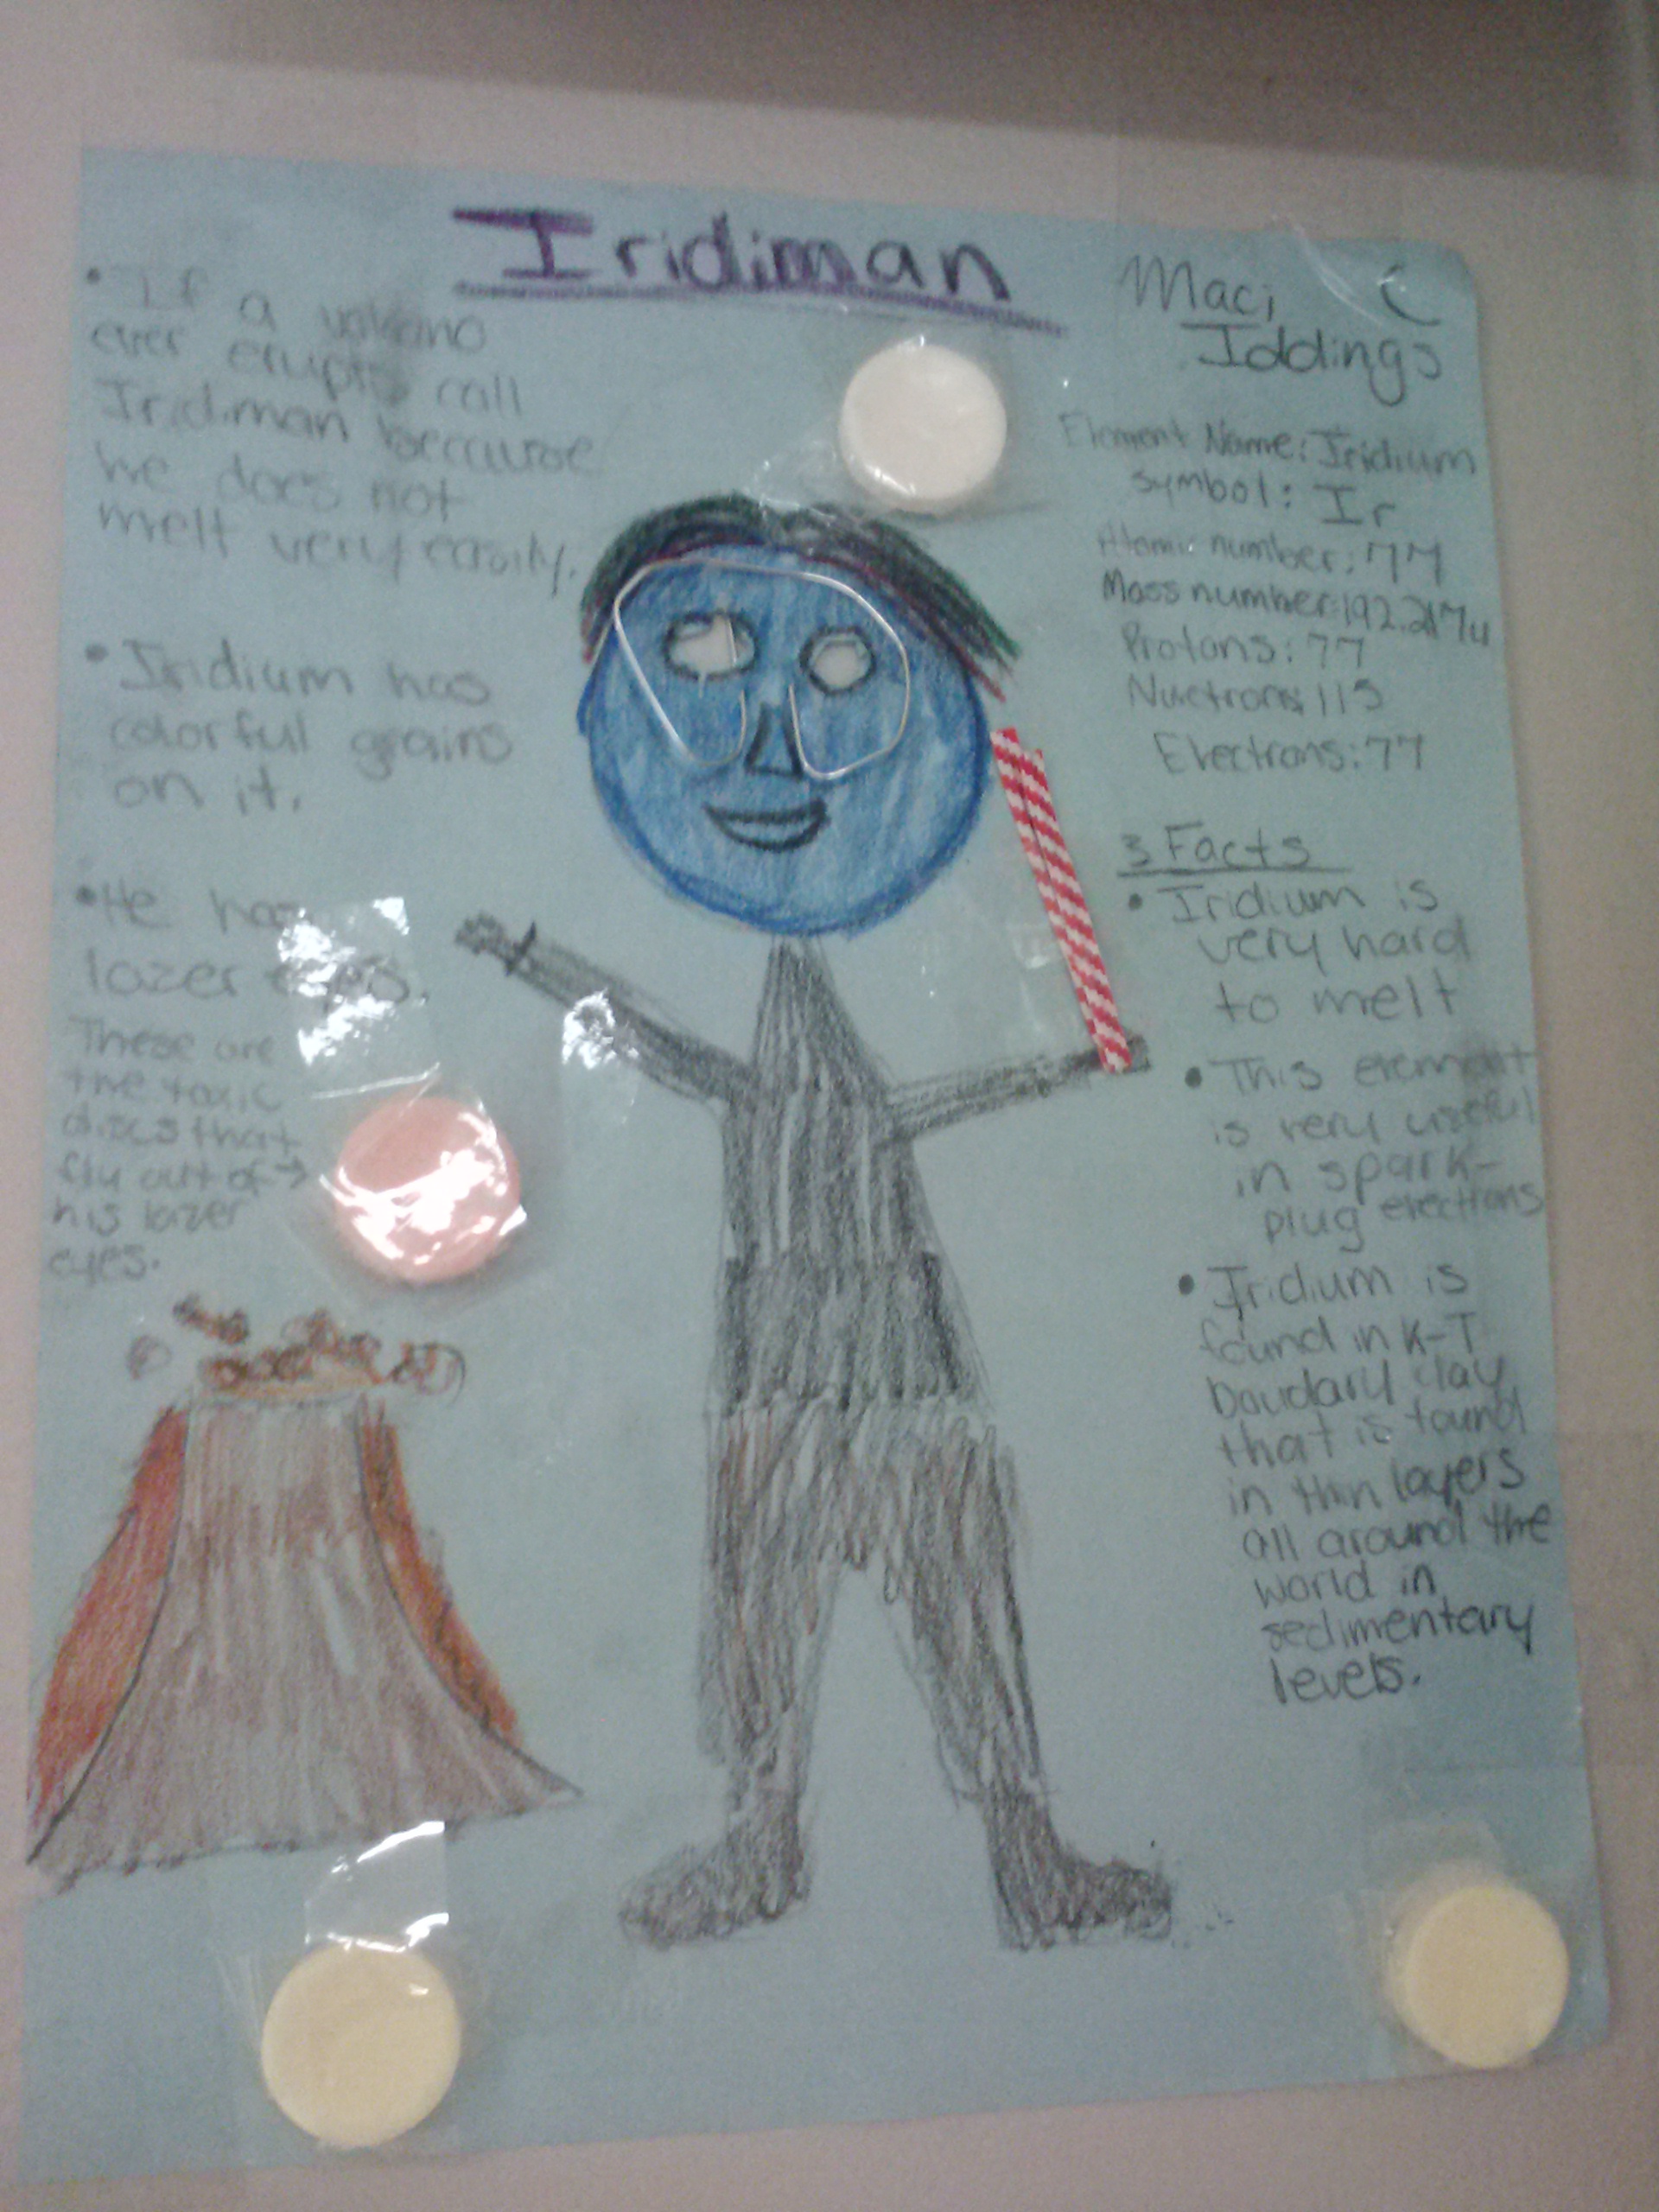 Iridiman
Maci C
Iddings
• If a volcano
ever erupts call
Iridiman because
he does not
melt very easily.
• Iridium has
colorful grains
on it.
• He has
lazer eyes.
These are
the toxic
discs that
fly out of →
his lazer
eyes.
Element Name: Iridium
symbol: Ir
Atomic number: 77
Mass number: 192.217u
Protons: 77
Nuetrons: 115
Electrons: 77
3 Facts
• Iridium is
very hard
to melt
• This element
is very useful
in spark-
plug
• Iridium is
found in K-T
boudary clay
that is found
in thin layers
all around the
world in
sedimentary
levels.